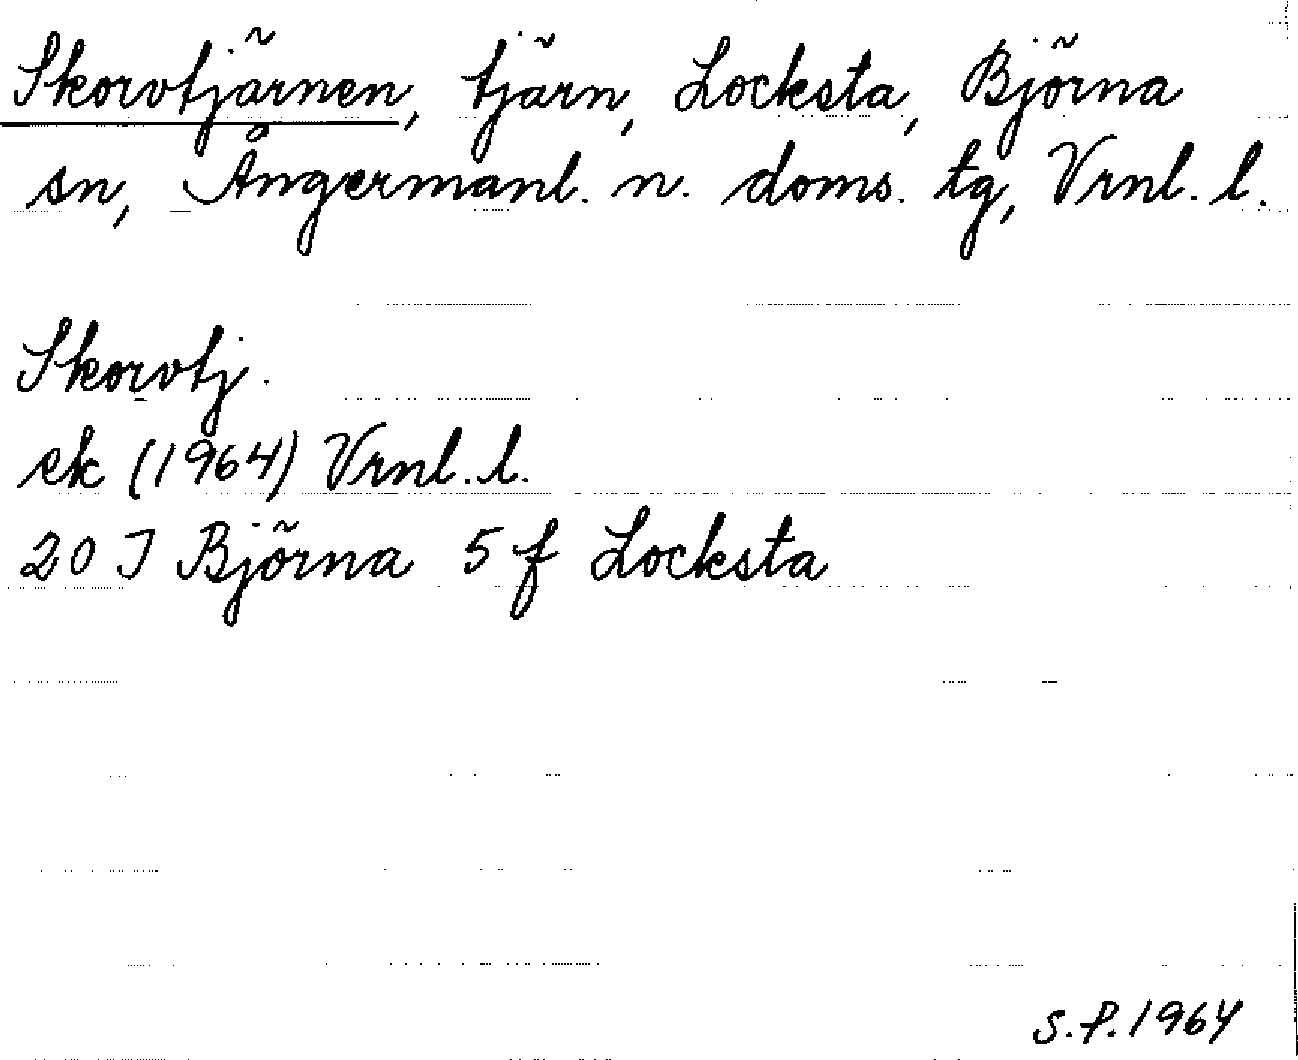 Skorvtjärnen, tjärn, Locksta, Björna
sn, Ångermanl. n. doms. tg, Vrnl. l.
Skorvtj.
ek (1964) Vrnl. l.
20 J Björna 5 f Locksta
S.P. 1964